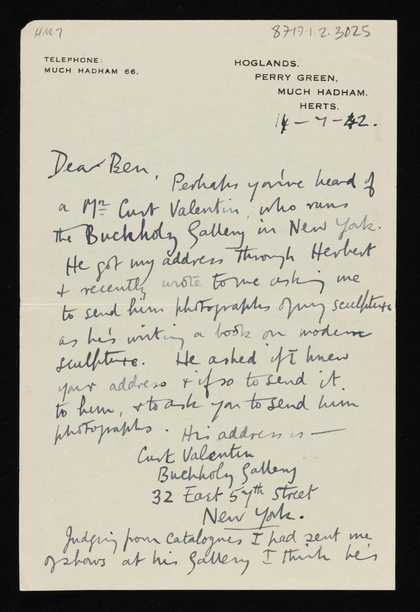 HM7
8717.1.2.3025
TELEPHONE:
MUCH HADHAM 66.
HOGLANDS.
PERRY GREEN,
MUCH HADHAM.
HERTS.
14-7-42.
Dear Ben,
Perhaps you've heard of
a Mr Curt Valentin, who runs
the Buckholz Gallery in New York.
He got my address through Herbert
& recently wrote to me asking me
to send him photographs of my sculpture
as he's writing a book on modern
sculpture. He asked if I knew
your address & if so to send it
to him, & to ask you to send him
photographs. His address is —
Curt Valentin
Buckholy Gallery
32 East 57th Street
New York.
Judging from catalogues I had sent me
of shows at his Gallery I think he's